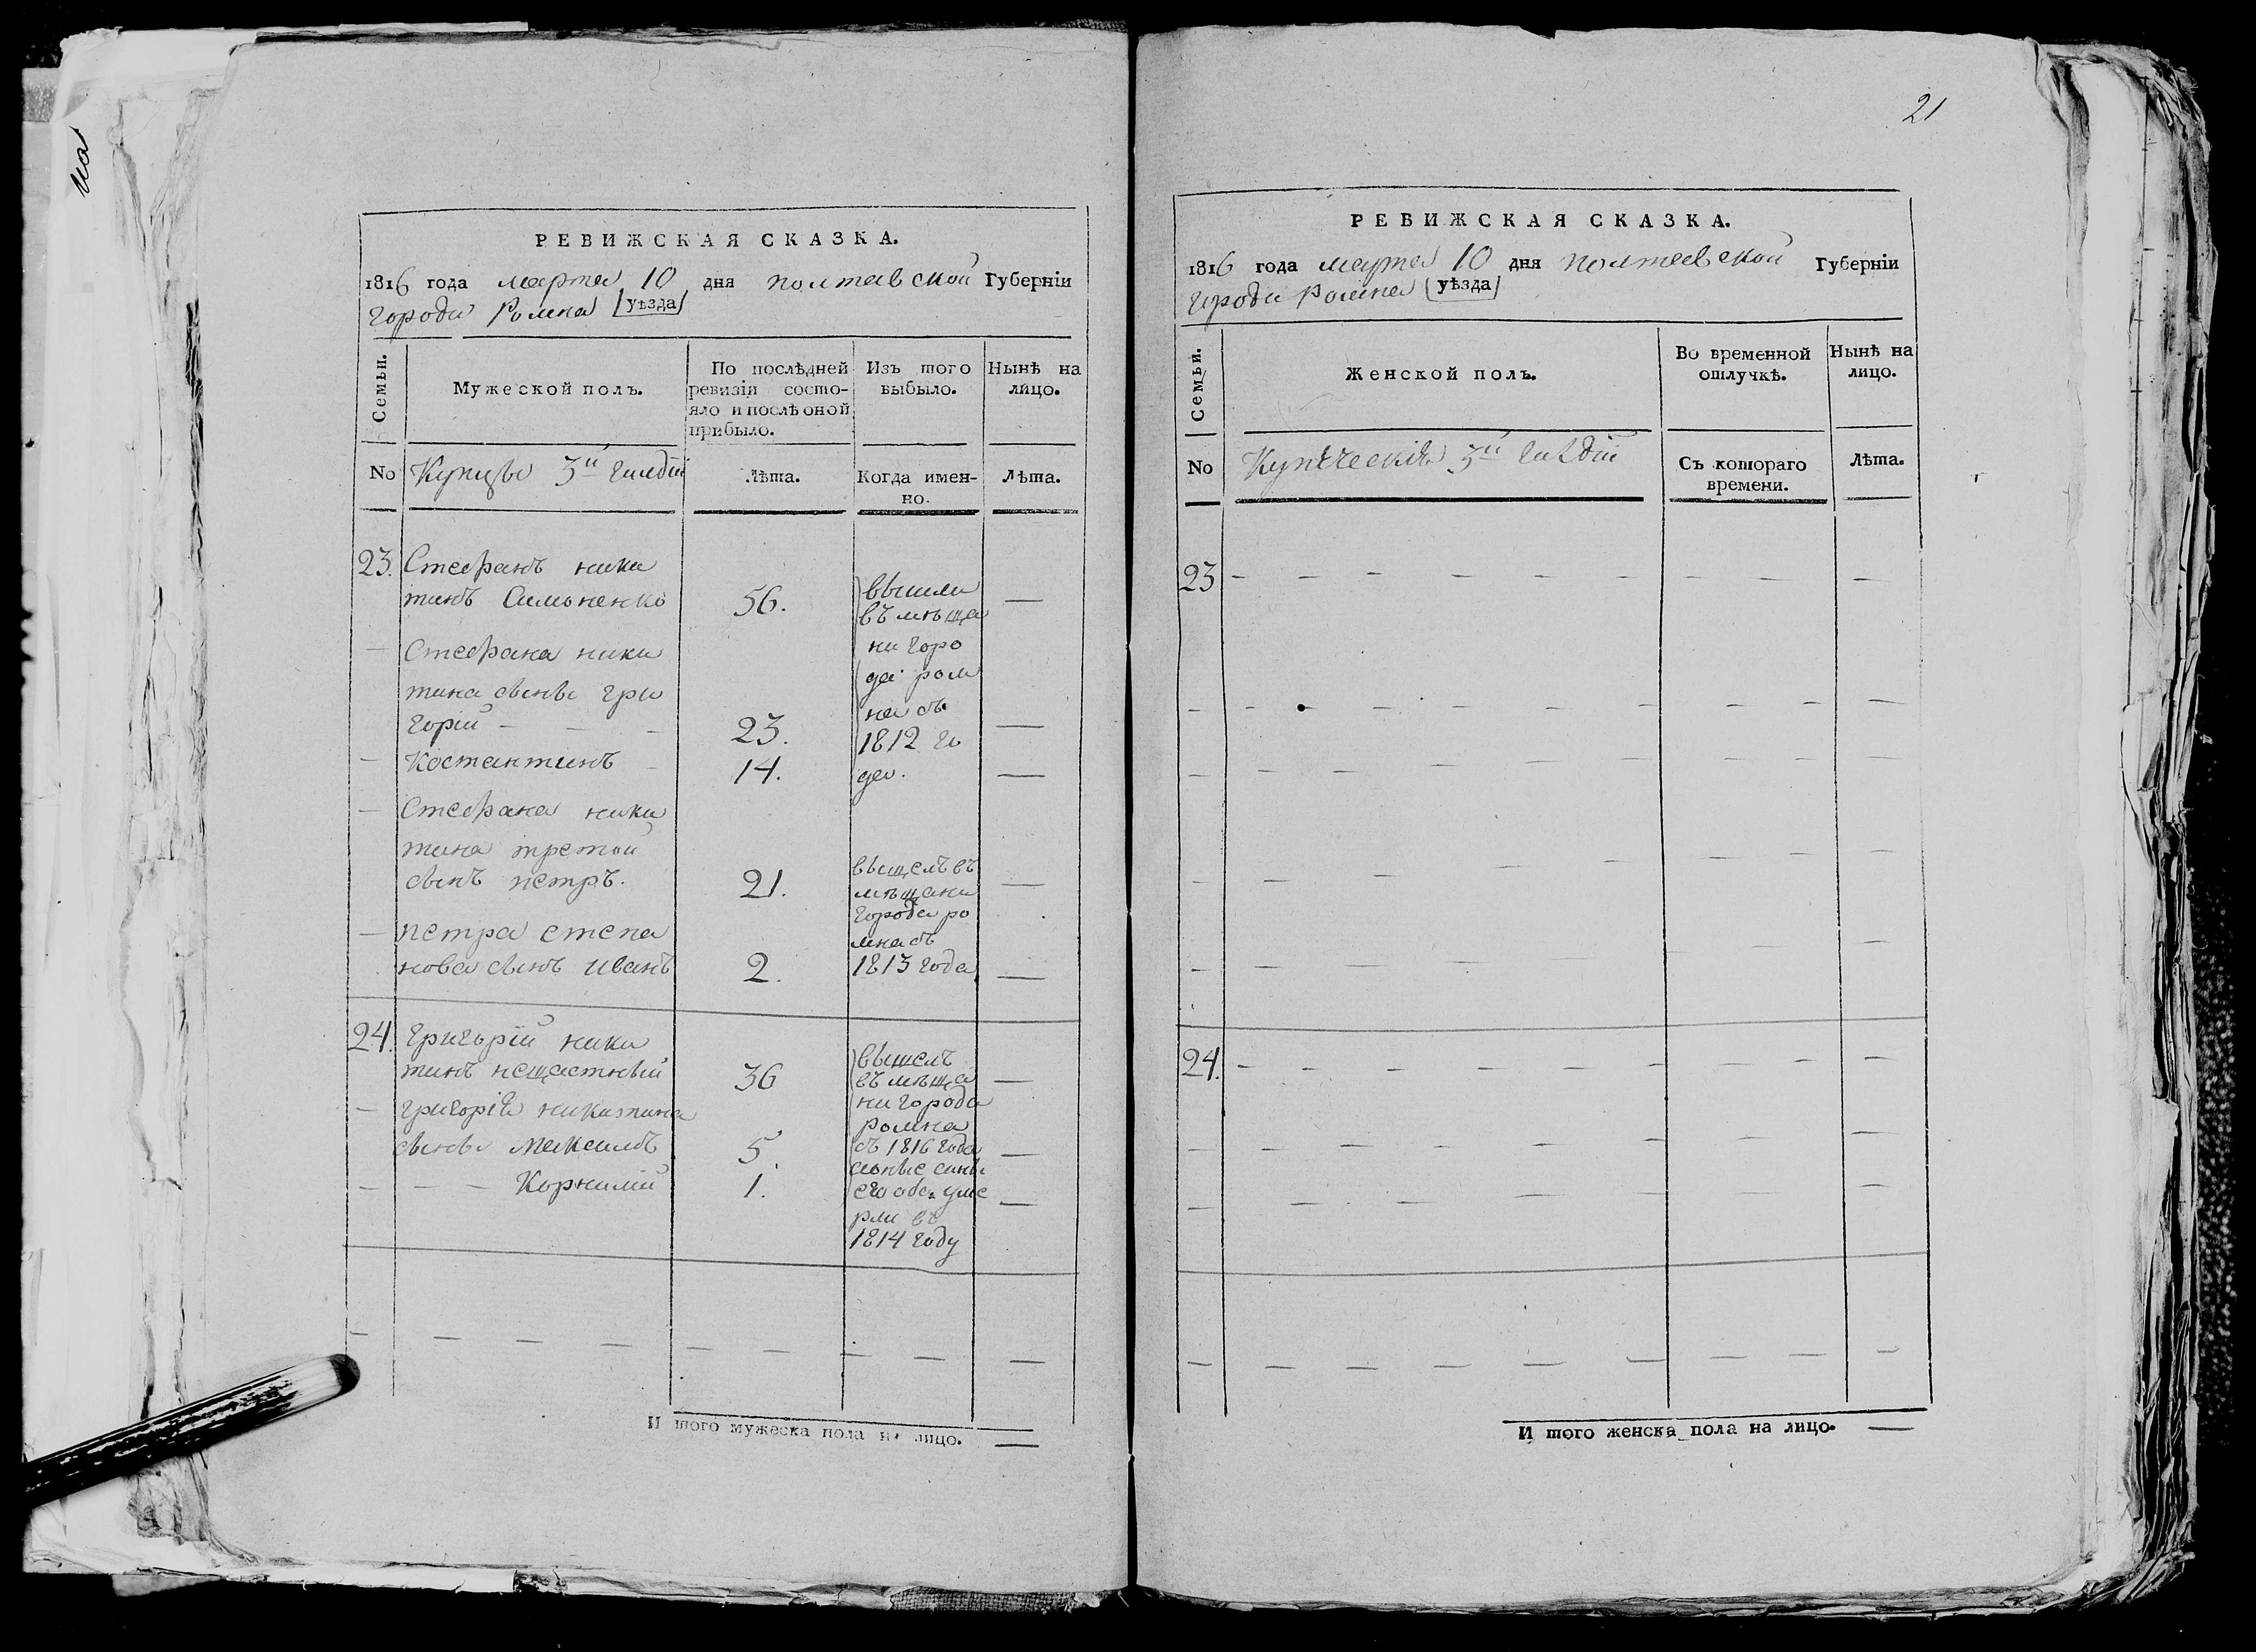 на
РЕВИЖСКАЯ СКАЗКА.
1816 года марта 10 дня полтавской Губерніи
города Ромна (уѣзда)
Семьи.
Мужеской полъ.
По послѣдней ревизіи состо-
яло и послѣ оной прибыло.
Изъ того выбыло.
Нынѣ на лицо.
No Купцы 3й гилдіи
лѣта.
Когда имен-
но.
Лѣта.
23. Стефанъ ники
тинъ Симоненко 56. —
вышли
въ мѣща
ни горо
да ром
на съ
1812 го
да.
— Стефана ники
тина сыны гри
горій — — — 23. —
— Костантинъ — 14. —
— Стефана ники
тина третой
сынъ петръ. 21. —
вышелъ въ
мѣщани
города ро
мна съ
1813 года
— петра степа
нова сынъ иванъ 2. —
24. григорій ники
тинъ нещастный 36 —
вышелъ
въ мѣща
ни города
ромна
съ 1816 года
сыны
его оба уме
рли въ
1814 году
— григорія никитина
сыны максимъ 5. —
— — — Корнилій 1. —
И того мужеска пола на лицо. —
21
РЕВИЖСКАЯ СКАЗКА.
1816 года марта 10 дня полтавской Губерніи
города Ромна (уѣзда)
Семьи.
Женской полъ.
Во временной
отлучкѣ.
Нынѣ на
лицо.
No Купеческія 3й гилдіи
Съ котораго
времени.
Лѣта.
23
24.
И того женска пола на лицо. —